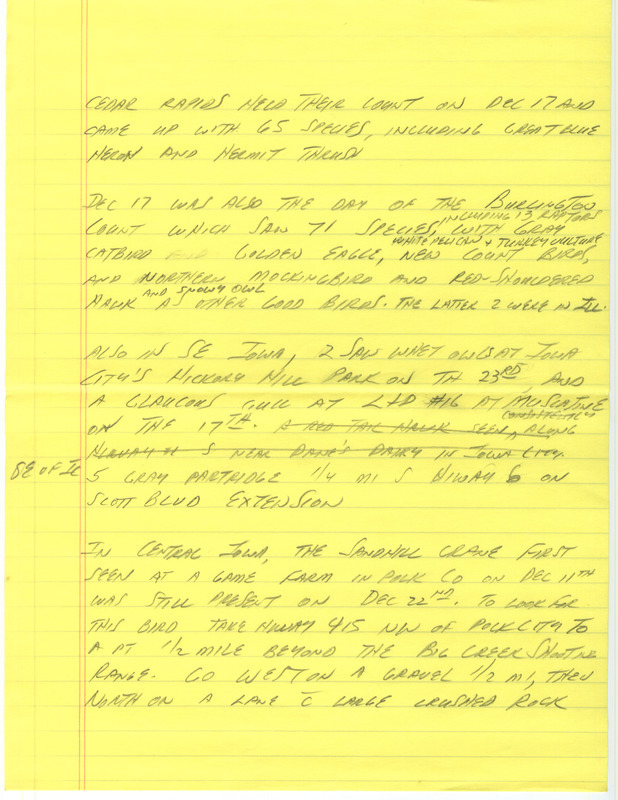 CEDAR RAPIDS HELD THEIR COUNT ON DEC 17 AND
CAME UP WITH 65 SPECIES, INCLUDING GREAT BLUE
HERON AND HERMIT THRUSH
DEC 17 WAS ALSO THE DAY OF THE BURLINGTON
INCLUDING 13 RAPTORS
COUNT WHICH SAW 71 SPECIES, WITH GRAY
WHITE PELICAN + TURKEY VULTURE
CATBIRD GOLDEN EAGLE, NEW COUNT BIRDS,
AND NORTHERN MOCKINGBIRD AND RED-SHOULDERED
AND SNOWY OWL
HAWK AS OTHER GOOD BIRDS. THE LATTER 2 WERE IN ILL.
ALSO IN SE IOWA, 2 SAW WHET OWLS AT IOWA
CITY'S HICKORY HILL PARK ON TH 23RD, AND
A GLAUCOUS GULL AT L+D #16 AT MUSCATINE
ON THE 17TH. A RED TAIL HAWK SEEN, ALONG
HIWAY #1 S NEAR DANE'S DAIRY IN IOWA CITY.
SE OF IC 5 GRAY PARTRIDGE 1/4 MI S HIWAY 6 ON
SCOTT BLVD EXTENSION
IN CENTRAL IOWA, THE SANDHILL CRANE FIRST
SEEN AT A GAME FARM IN POLK CO ON DEC 11TH
WAS STILL PRESENT ON DEC 22ND. TO LOOK FOR
THIS BIRD TAKE HIWAY 415 NW OF POLK CITY TO
A PT 1/2 MILE BEYOND THE BIG CREEK SHOOTING
RANGE. GO WEST ON A GRAVEL 1/2 MI, THEN
NORTH ON A LANE C̄ LARGE CRUSHED ROCK